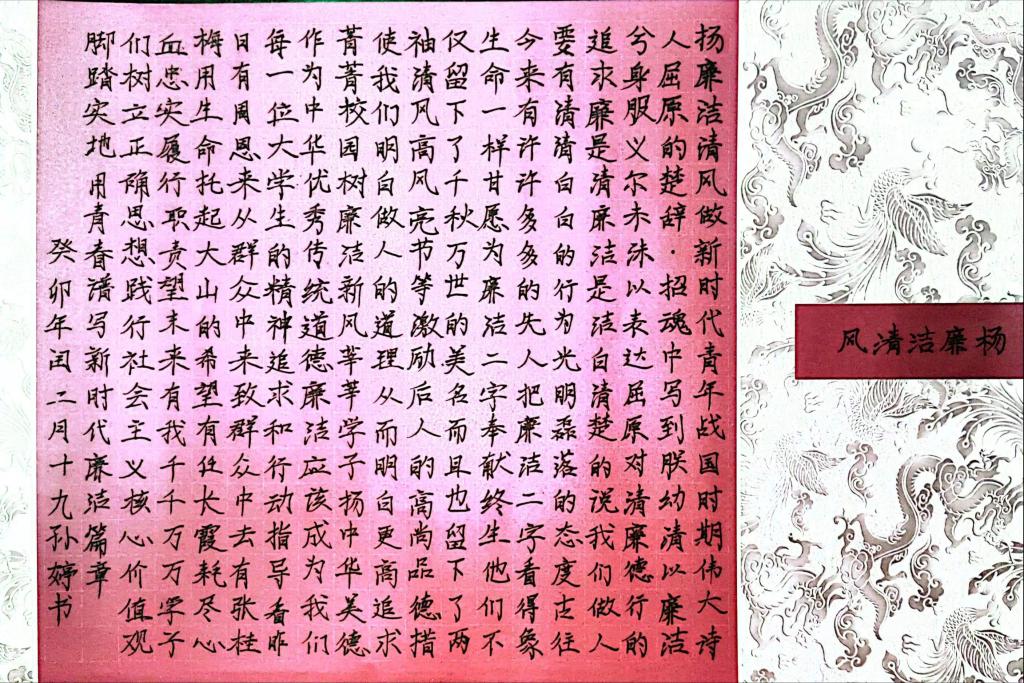 杨廉洁清风
杨廉洁清风做新时代青年战国时期伟大诗
人屈原的楚辞·招魂中写到朕幼清以廉洁
兮身服义尔未沫以表达屈原对清廉德行的
追求廉是清廉洁是洁白清楚的说我们做人
要有清清白白的行为光明磊落的态度古往
今来有许许多多的先人把廉洁二字看得象
生命一样甘愿为廉洁二字奉献终生他们不
仅留下了千秋万世的美名而且也留下了两
袖清风高风亮节等激励后人的高尚品德措
使我们明白做人的道理从而明白更高追求
菁菁校园树廉洁新风莘莘学子扬中华美德
作为中华优秀传统道德廉洁应该成为我们
每一位大学生的精神追求和行动指导看昨
日有周恩来从群众中来致群众中去有张桂
梅用生命托起大山的希望有任长霞耗尽心
血忠实履行职责望未来有我千千万万学子
们树立正确思想践行社会主义核心价值观
脚踏实地用青春谱写新时代廉洁篇章
癸卯年闰二月十九孙婷书